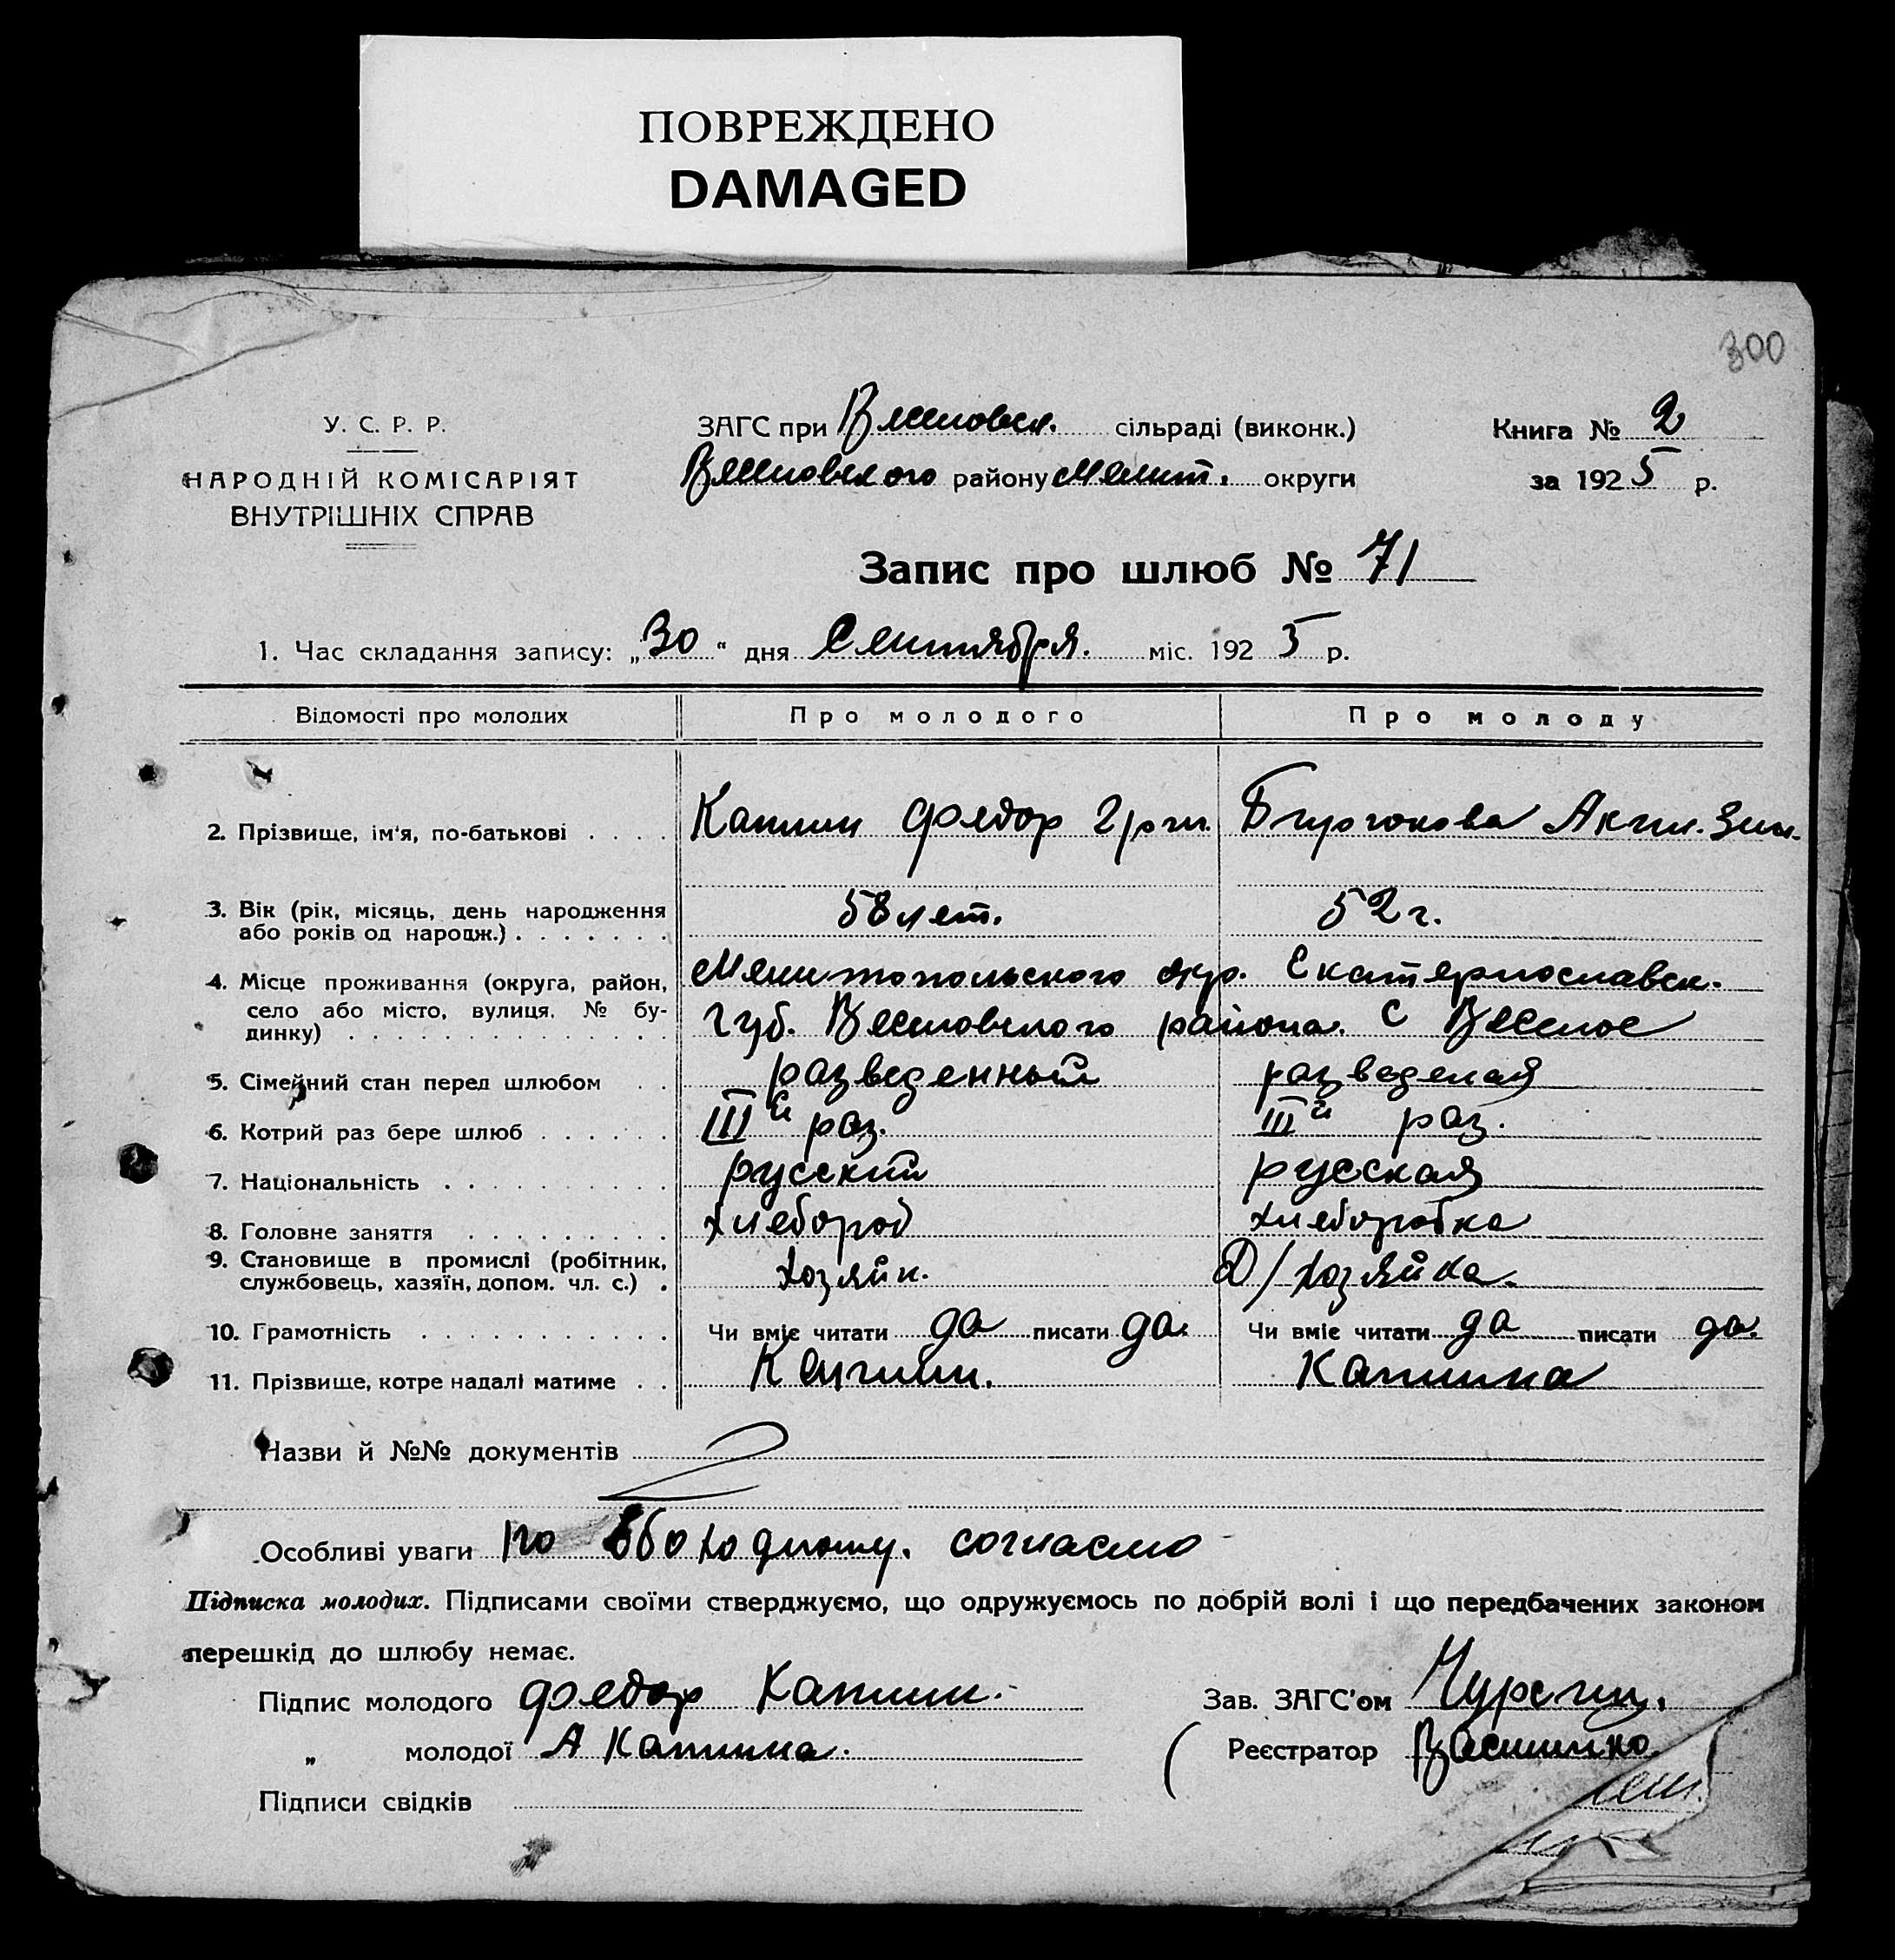 ПОВРЕЖДЕНО
DAMAGED
300
У. С. Р. Р.
НАРОДНІЙ КОМІСАРІЯТ
ВНУТРІШНІХ СПРАВ
ЗАГС при Веселовск. сільраді (виконк.)
Веселовского району Мелит. округи
Книга № 2
за 1925 р.
Запис про шлюб № 71
1. Час складання запису: „30“ дня Сентября. міс. 1925 р.
Відомості про молодих Про молодого Про молоду
2. Прізвище, ім'я, по-батькові Федор Акил. Зин.
3. Вік (рік, місяць, день народження
або років од народж.) 58 лет. 52 г.
4. Місце проживання (округа, район, Мелитопольского окр. Екатеринославск.
село або місто, вулиця, № бу-
динку) Губ. Веселовского района. С Веселое
5. Сімейний стан перед шлюбом разведенный разведеная
6. Котрий раз бере шлюб III й раз. III й раз.
7. Національність русский русская
8. Головне заняття хлебороб хлеборобка
9. Становище в промислі (робітник,
службовець, хазяїн, допом. чл. с.) хозяйн. Д/хозяйка.
10. Грамотність Чи вміє читати да писати да. Чи вміє читати да писати да.
11. Прізвище, котре надалі матиме Капшина
Назви й №№ документів
Особливі уваги по обоюдному. согласию
Підписка молодих. Підписами своїми стверджуємо, що одружуємось по добрій волі і що передбачених законом
перешкід до шлюбу немає.
Підпис молодого Федор
„ молодої А
Підписи свідків
Зав. ЗАГС'ом Чурсин.
Реєстратор